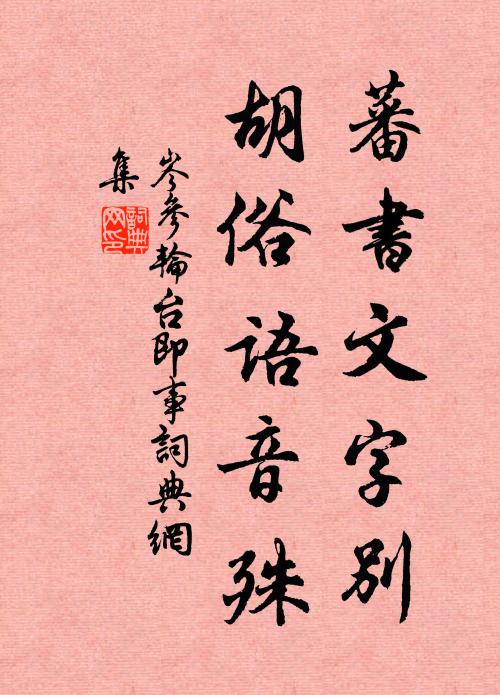 蕃書文字別
胡俗語音殊
岑參輪台即事詞典網
集
詞典
网印